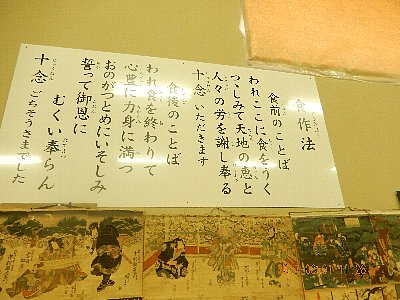 食作法
食前のことば
われここに食をうく
つつしみて天地の恵と
人々の労を謝し奉る
十念 いただきます
食後のことば
われ食を終わりて
心豊に力身に満つ
おのがつとめにいそしみ
誓って御恩に
むくい奉らん
十念 ごちそうさまでした